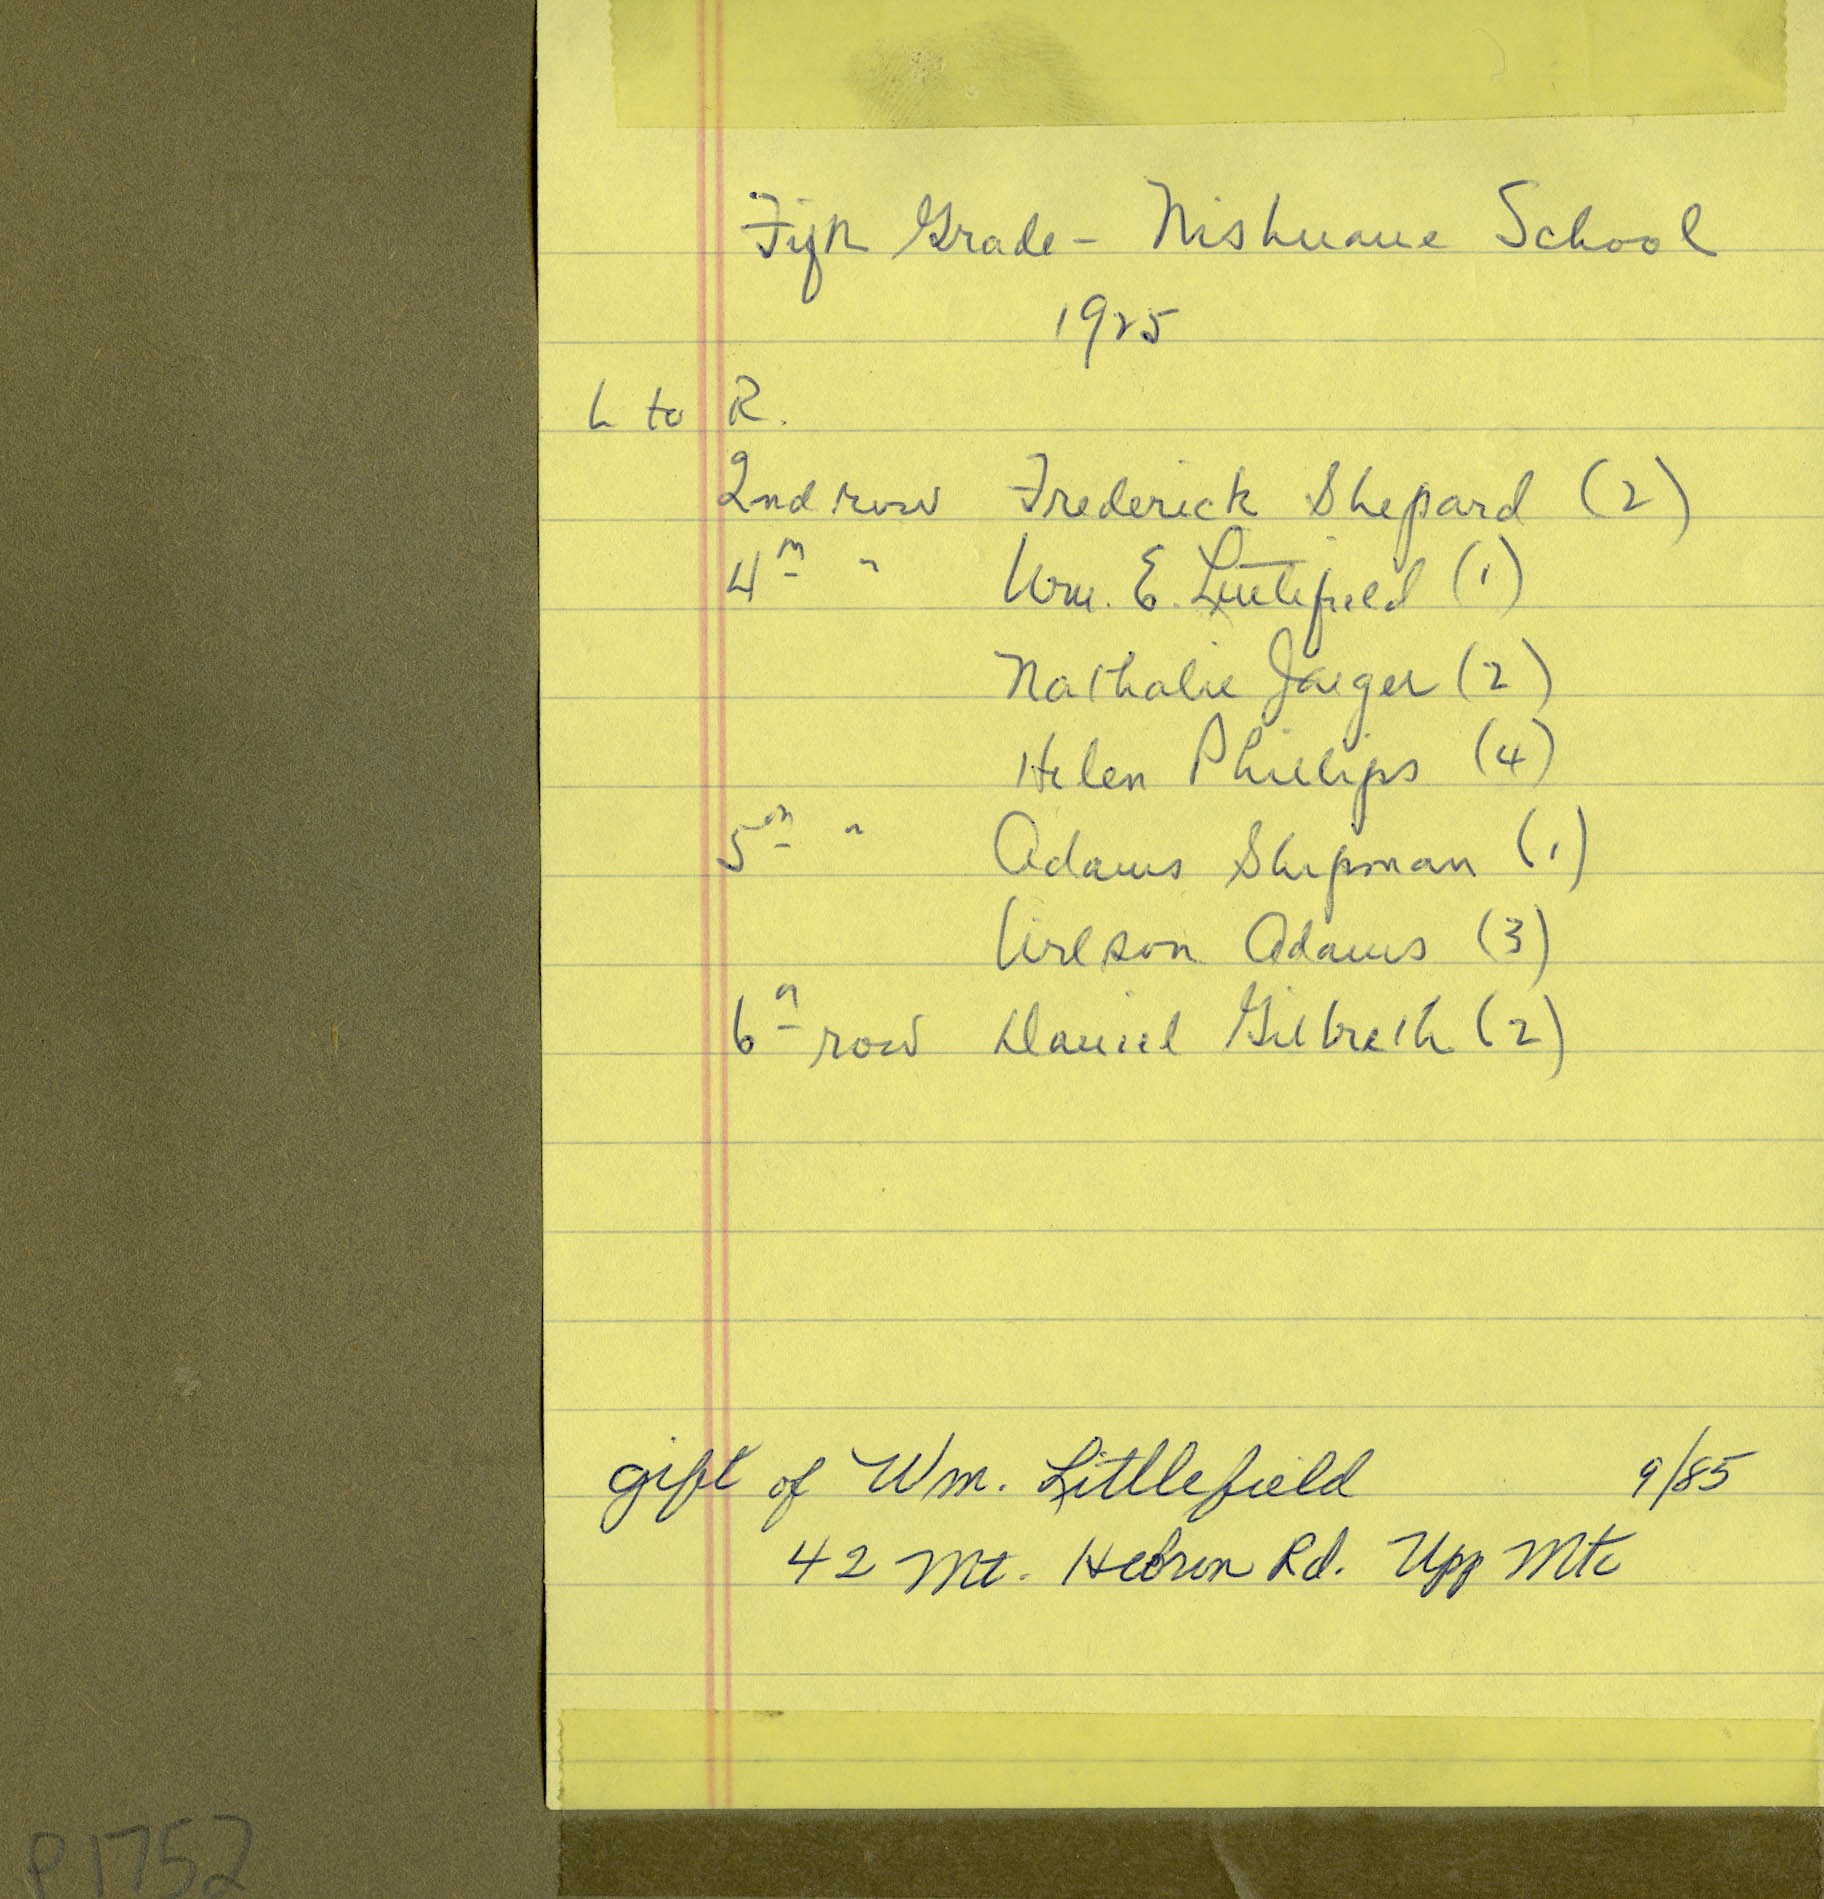 Fifth Grade - Nishuane School
1925
L to R.
2nd row Frederick Shepard (2)
4th " Wm. E. Littlefield (1)
Nathalie Jaeger (2)
Helen Phillips (4)
5th " Adams Shipman (1)
Wilson Adams (3)
6th row Daniel Gilbreth (2)
gift of Wm. Littlefield 9/85
42 Mt. Hebron Rd. Upp Mtc
P1752